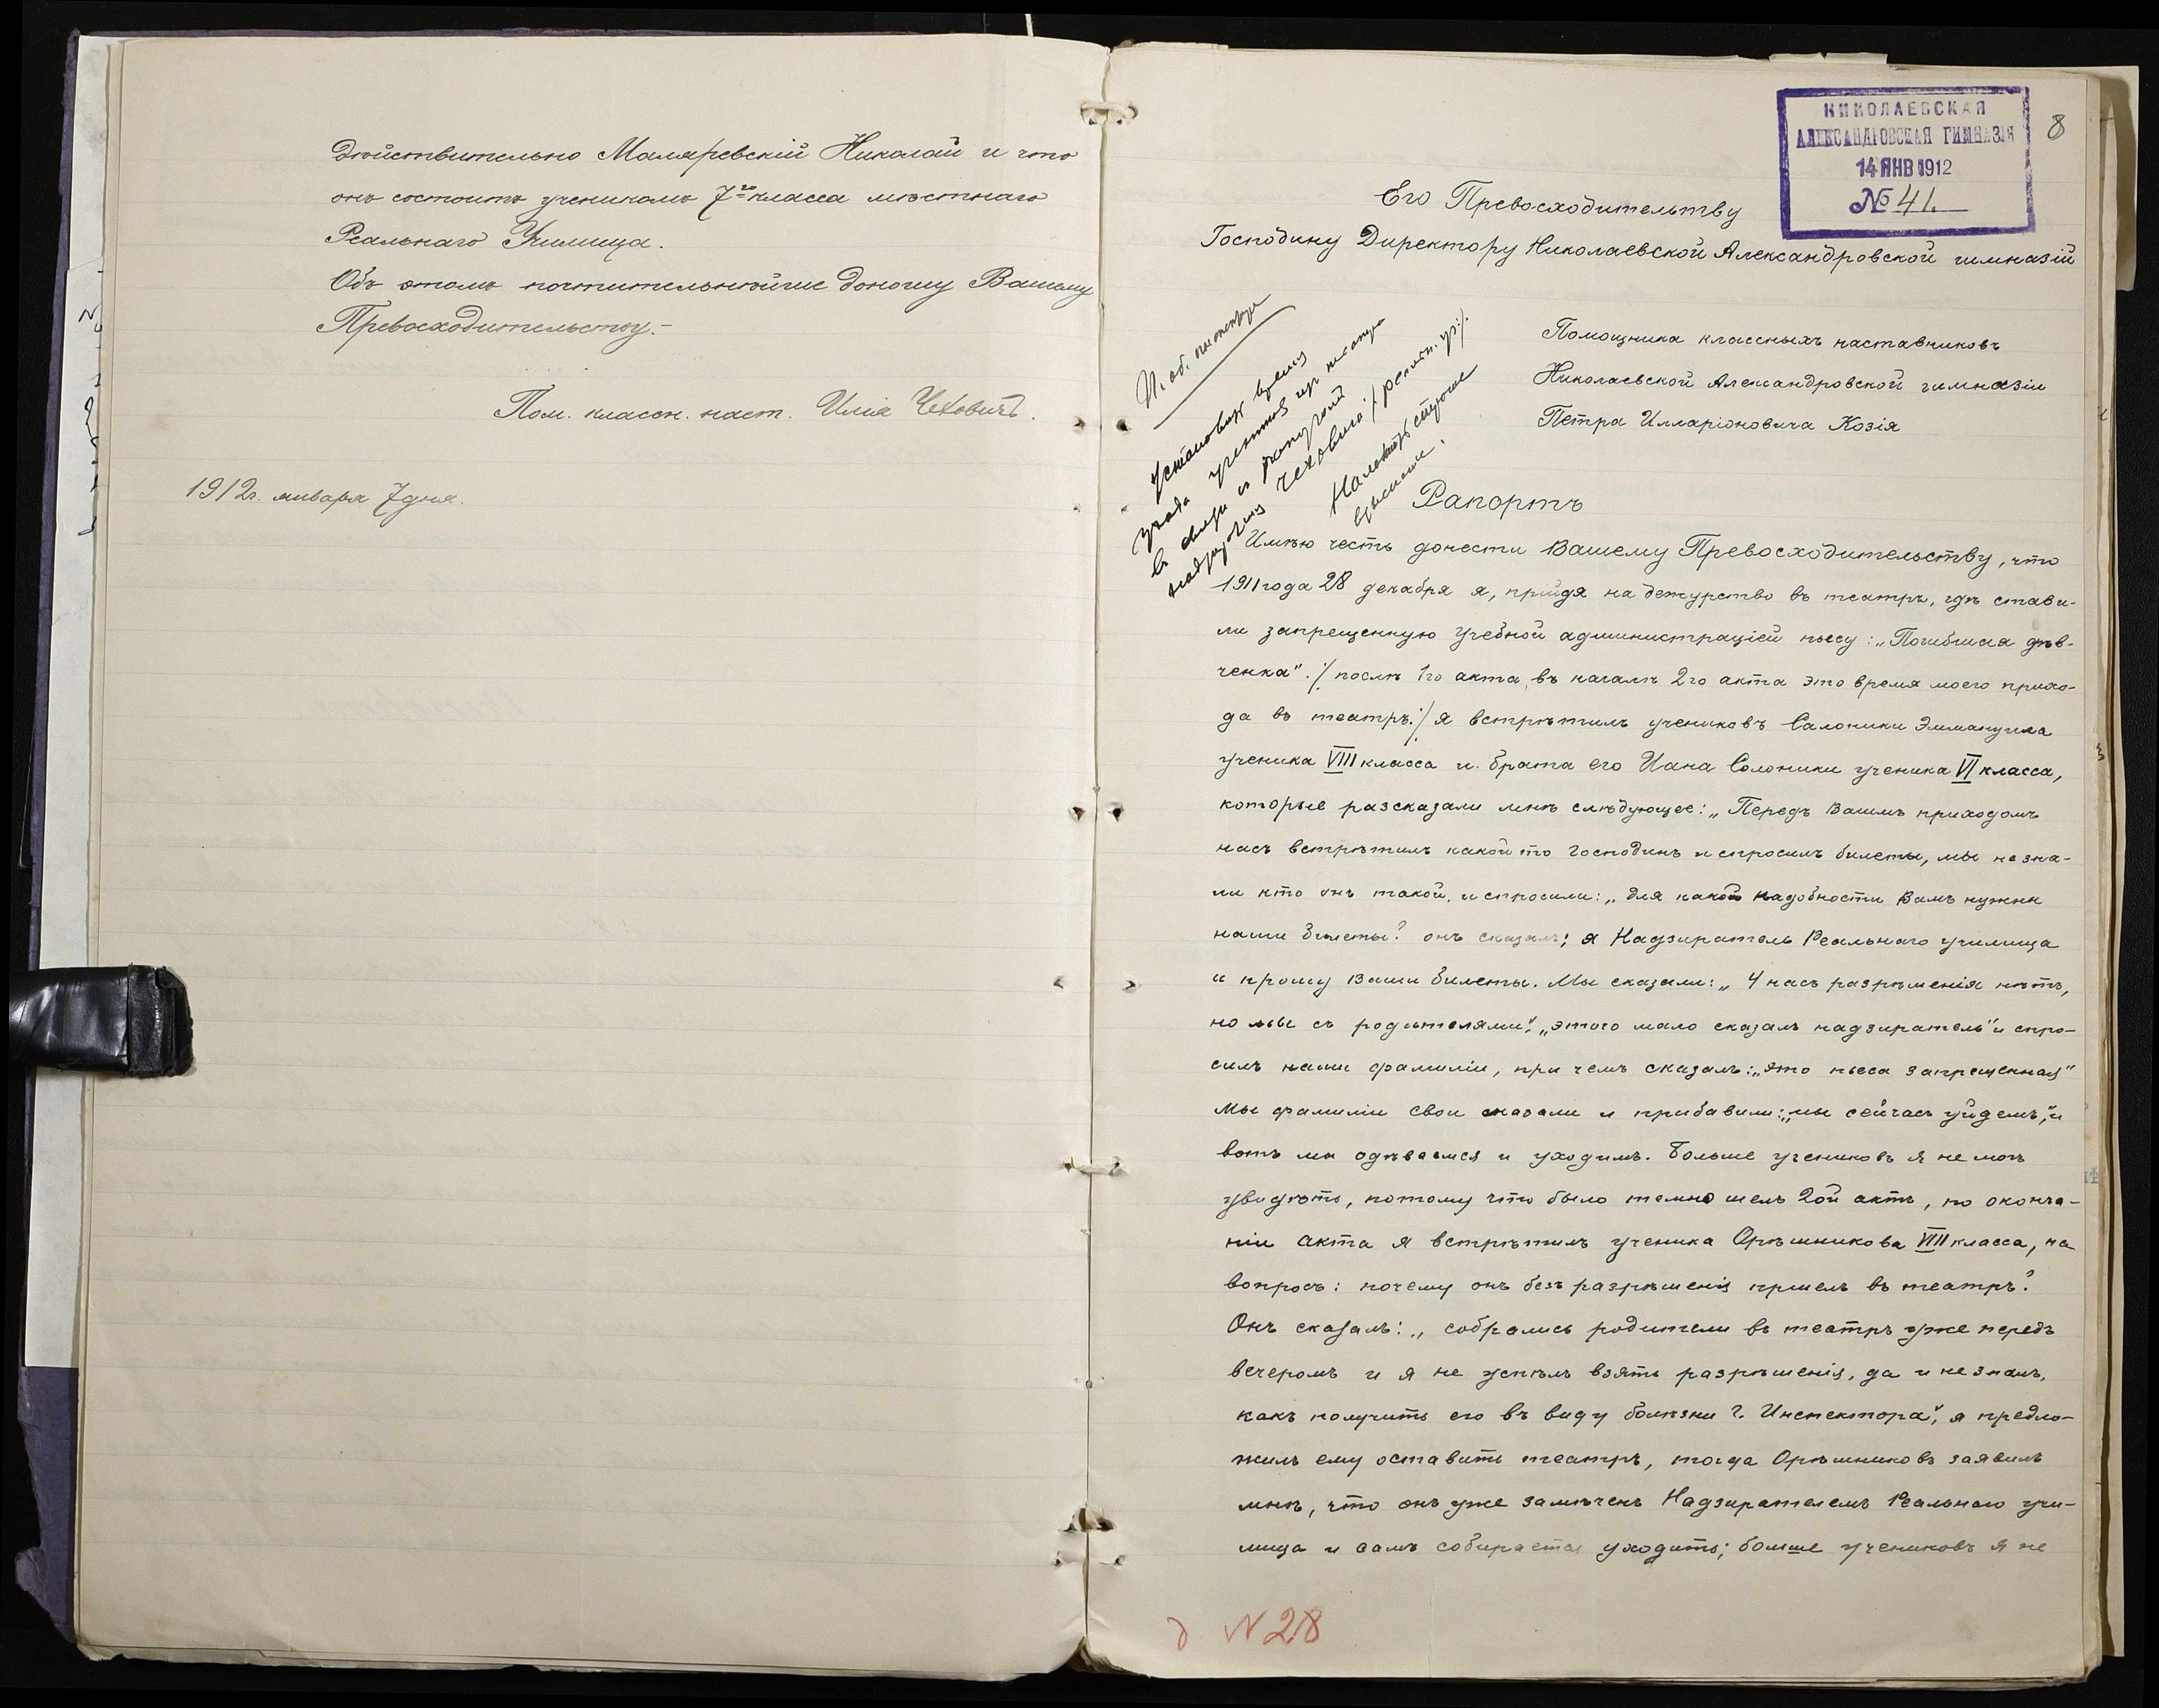 дѣйствительно Маляревскій Николай и что
онъ состоитъ ученикомъ 7го класса мѣстнаго
Реальнаго Училища.
Объ этомъ почтительнѣйше доношу Вашему
Превосходительству.-
Пом. классн. наст. Илія Чеховичъ.
1912г. января 7 дня.
НИКОЛАЕВСКАЯ
АЛЕКСАНДРОВСКАЯ ГИМНАЗІЯ
14 ЯНВ 1912
№ 41.
8
Его Превосходительтву
Господину Директору Николаевской Александровской гимназій
Помощника классныхъ наставниковъ
Николаевской Александровской гимназіи
Петра Илларіоновича Козія
И. об. инспектора
Установить время
ухода учениковъ изъ театра
въ связи съ
надзирателя Чеховича
Наложить
взысканіе.
Рапортъ
Имѣю честь донести Вашему Превосходительству, что
1911 года 28 декабря я, прийдя на дежурство въ театръ, гдѣ стави-
ли запрещенную учебной администраціей пьесу: „Погибшая дѣв-
ченка" :/ послѣ 1го акта, въ началѣ 2го акта это время моего прихо-
да въ театръ:/ я встрѣтилъ учениковъ Салоники Эммануила
ученика VIII класса и брата его Иана Солоники ученика VI класса,
которые разсказали мнѣ слѣдующее: „Передъ Вашимъ приходомъ
насъ встрѣтилъ какой то господинъ и спросилъ билеты, мы не зна-
ли кто онъ такой, и спросили: „Для какой надобности Вамъ нужны
наши билеты? онъ сказалъ; я Надзиратель Реальнаго училища
и прошу Ваши билеты. Мы сказали: „У насъ разрѣшенія нѣтъ,
но мы съ родителями", „этого мало сказалъ надзиратель" и спро-
силъ наши фамиліи, при чемъ сказалъ: „это пьеса запрещенная"
Мы фамиліи свои сказали и прибавили: „мы сейчасъ уйдемъ", и
вотъ мы одѣваемся и уходимъ. Больше учениковъ я не могъ
увидѣть, потому что было темно шелъ 2ой актъ, по оконча-
ніи акта я встрѣтилъ ученика Орѣшникова VIII класса, на
вопросъ: почему онъ безъ разрѣшенія пришелъ въ театръ?
Онъ сказалъ: „собрались родители въ театръ уже передъ
вечеромъ и я не успѣлъ взять разрѣшенія, да и не зналъ,
какъ получить его въ виду болѣзни г. Инспектора", я предло-
жилъ ему оставить театръ, тогда Орѣшниковъ заявилъ
мнѣ, что онъ уже замѣченъ Надзирателемъ Реальнаго учи-
лища и самъ собирается уходить; больше учениковъ я не
д N 28